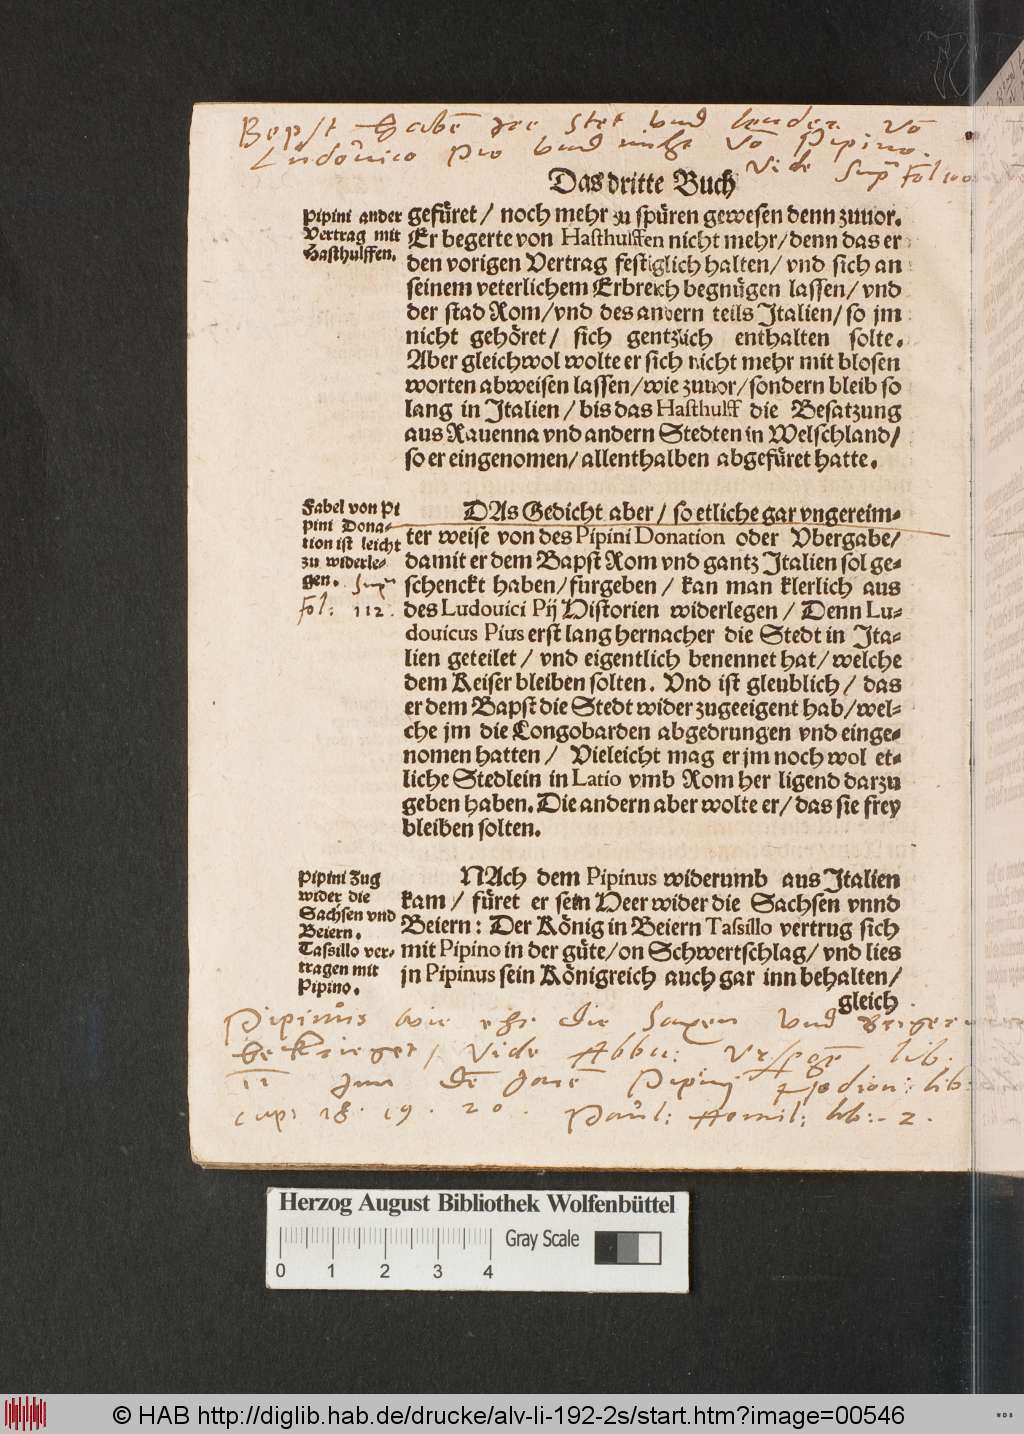 Bepst habē jre stet vnd lender vō
Ludouico Pio vnd nicht vō Pipino.
Vide Sup Fol 100
Das dritte Buch
Pipini ander
Vertrag mit
Hasthulffen.
gefüret / noch mehr zu spüren gewesen denn zuuor.
Er begerte von Hasthulffen nicht mehr / denn das er
den vorigen Vertrag festiglich halten / vnd sich an
seinem veterlichem Erbreich begnügen lassen / vnd
der stad Rom / vnd des andern teils Italien / so jm
nicht gehöret / sich gentzlich enthalten solte.
Aber gleichwol wolte er sich nicht mehr mit blosen
worten abweisen lassen / wie zuuor / sondern bleib so
lang in Italien / bis das Hasthulff die Besatzung
aus Rauenna vnd andern Stedten in Welschland /
so er eingenomen / allenthalben abgefüret hatte.
Fabel von Pi
pini Dona-
tion ist leicht
zu widerle-
gen. Sup
fol: 112.
DAs Gedicht aber / so etliche gar vngereim-
ter weise von des Pipini Donation oder Vbergabe /
damit er dem Bapst Rom vnd gantz Italien sol ge-
schenckt haben / furgeben / kan man klerlich aus
des Ludouici Pij Historien widerlegen / Denn Lu-
douicus Pius erst lang hernacher die Stedt in Ita-
lien geteilet / vnd eigentlich benennet hat / welche
dem Keiser bleiben solten. Vnd ist gleublich / das
er dem Bapst die Stedt wider zugeeigent hab / wel-
che jm die Longobarden abgedrungen vnd einge-
nomen hatten / Vieleicht mag er jm noch wol et-
liche Stedlein in Latio vmb Rom her ligend darzu
geben haben. Die andern aber wolte er / das sie frey
bleiben solten.
Pipini Zug
wider die
Sachsen vnd
Beiern.
Tassillo ver-
tragen mit
Pipino.
NAch dem Pipinus widerumb aus Italien
kam / füret er sein Heer wider die Sachsen vnnd
Beiern : Der König in Beiern Tassillo vertrug sich
mit Pipino in der güte / on Schwertschlag / vnd lies
jn Pipinus sein Königreich auch gar inn behalten /
gleich
Pipinus wie ehr die Saxen vnd
bekrieget / Vide Abbu: Vrspgē lib:
11 Pipinj lib:
cap: 18. 19. 20. Paul: Aemil: lib: 2.
Herzog August Bibliothek Wolfenbüttel
Gray Scale
0 1 2 3 4
© HAB http://diglib.hab.de/drucke/alv-li-192-2s/start.htm?image=00546